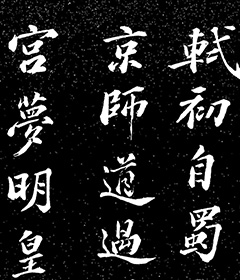 軾初自蜀
京師道過
宮夢明皇